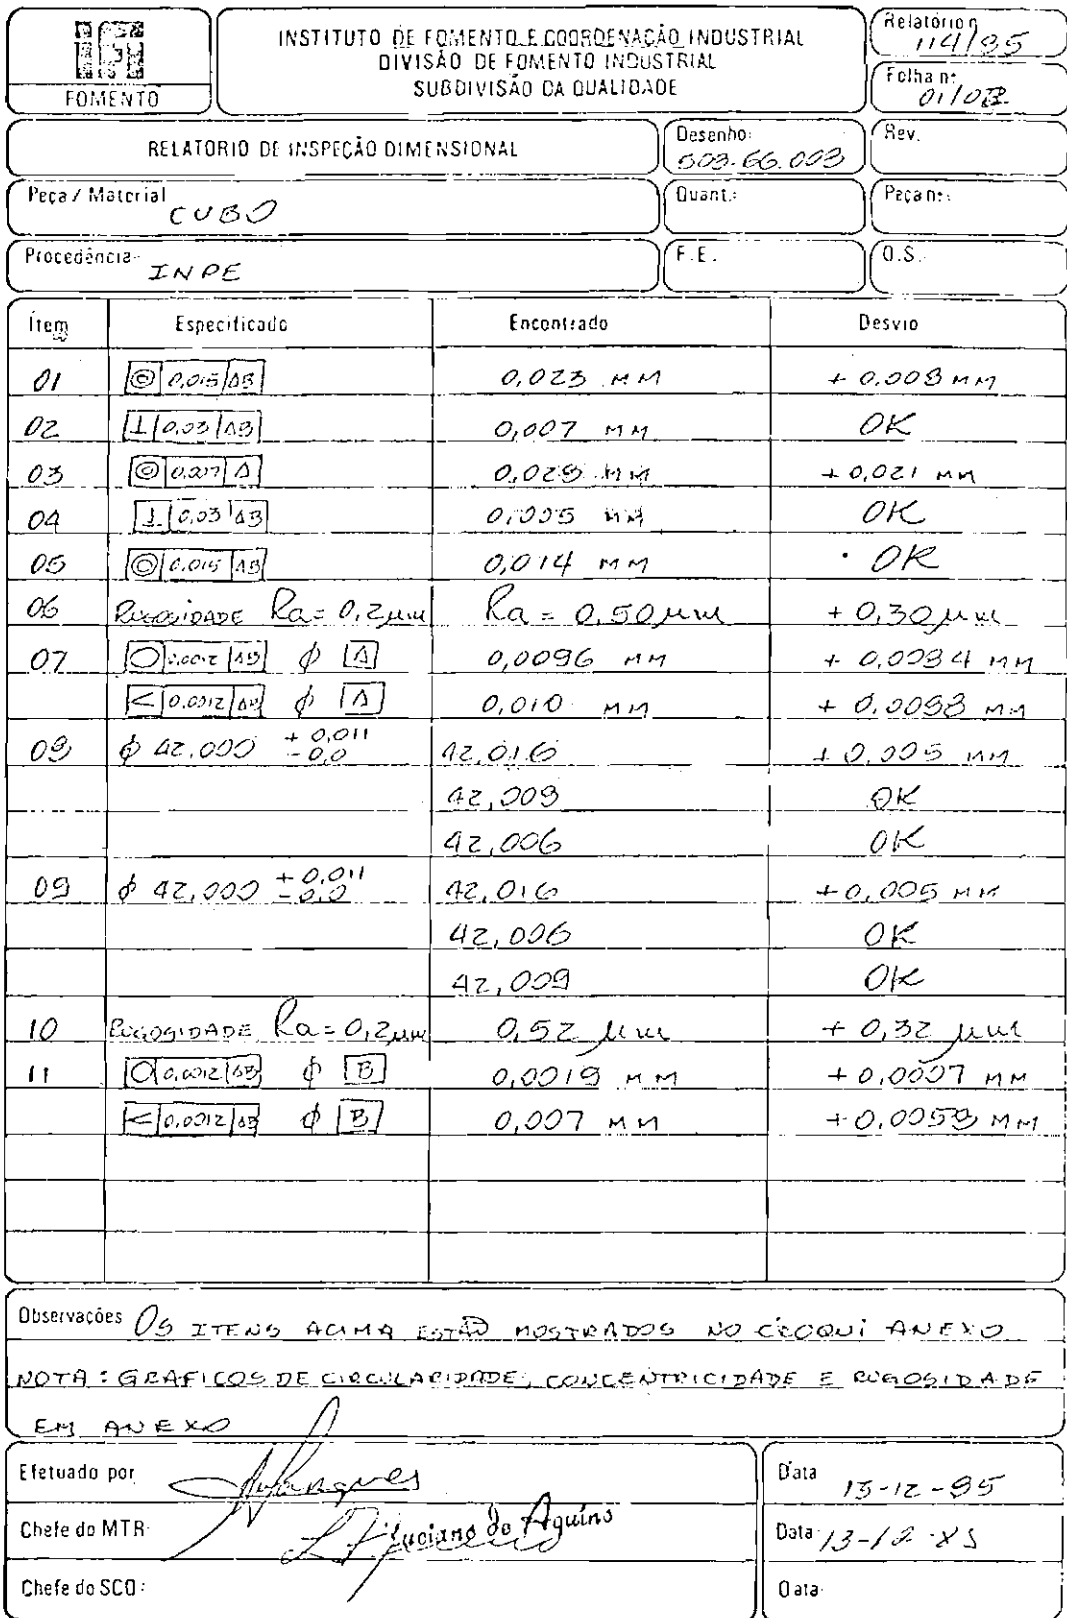 IFI
FOMENTO
INSTITUTO DE FOMENTO E COORDENAÇÃO INDUSTRIAL
DIVISÃO DE FOMENTO INDUSTRIAL
SUBDIVISÃO DA QUALIDADE
Relatório n
114/85
Folha nº
01/02
RELATÓRIO DE INSPEÇÃO DIMENSIONAL
Desenho:
503.66.003
Rev.
Peça / Material
CUBO
Quant.:
Peça nº:
Procedência:
INPE
F.E.
O.S.
Ítem Especificado Encontrado Desvio
01 ◎ 0,015 AB 0,023 MM + 0,008 MM
02 ⊥ 0,03 AB 0,007 MM OK
03 ◎ 0,007 A 0,028 MM + 0,021 MM
04 ⊥ 0,03 AB 0,005 MM OK
05 ◎ 0,015 AB 0,014 MM OK
06 RUGOSIDADE Ra = 0,2 µm Ra = 0,50 µm + 0,30 µm
07 ○ 0,0012 AB ϕ A 0,0096 MM + 0,0084 MM
< 0,0012 AB ϕ A 0,010 MM + 0,0088 MM
08 ϕ 42,000 + 0,011 - 0,0 42,016 + 0,005 MM
42,008 OK
42,006 OK
09 ϕ 42,000 + 0,011 - 0,0 42,016 + 0,005 MM
42,006 OK
42,009 OK
10 RUGOSIDADE Ra = 0,2 µm 0,52 µm + 0,32 µm
11 ○ 0,0012 AB ϕ B 0,0019 MM + 0,0007 MM
< 0,0012 AB ϕ B 0,007 MM + 0,0058 MM
Observações OS ITENS ACIMA ESTÃO MOSTRADOS NO CROQUI ANEXO
NOTA: GRAFICOS DE CIRCULARIDADE, CONCENTRICIDADE E RUGOSIDADE
EM ANEXO
Efetuado por Marques
Data 13-12-85
Chefe do MTR: Luciano de Aquino
Data 13-12-85
Chefe do SCQ:
Data